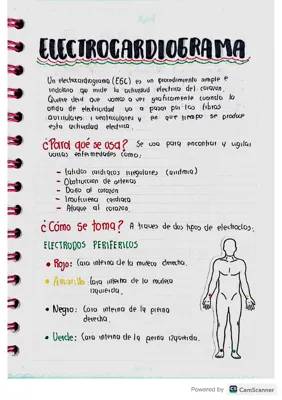 ELECTROCARDIOGRAMA
Un electrocardiograma (ECG) es un procedimiento simple e
indoloro que mide la actividad electrica del corazon.
Quiere decir que vamos a ver graficamente cuando la
onda de electricidad va a pasar por las fibras
auriculares i ventriculares y en que tiempo se produce
esta actividad electrica.
¿Para qué se usa? Se usa para encontrar y vigilar
varias enfermedades como:
- Latidos cardiacos irregulares (arritmia)
- Obstruccion de arterias
- Daño al corazon
- Insuficiencia cardiaca
- Ataque al corazon
¿Cómo se toma? A traves de dos tipos de electrodos:
ELECTRODOS PERIFERICOS
• Rojo: Cara interna de la muñeca derecha.
• Amarillo: Cara interna de la muñeca
izquierda.
• Negro: Cara interna de la pierna
derecha.
• Verde: Cara interna de la pierna izquierda.
Powered by CS CamScanner